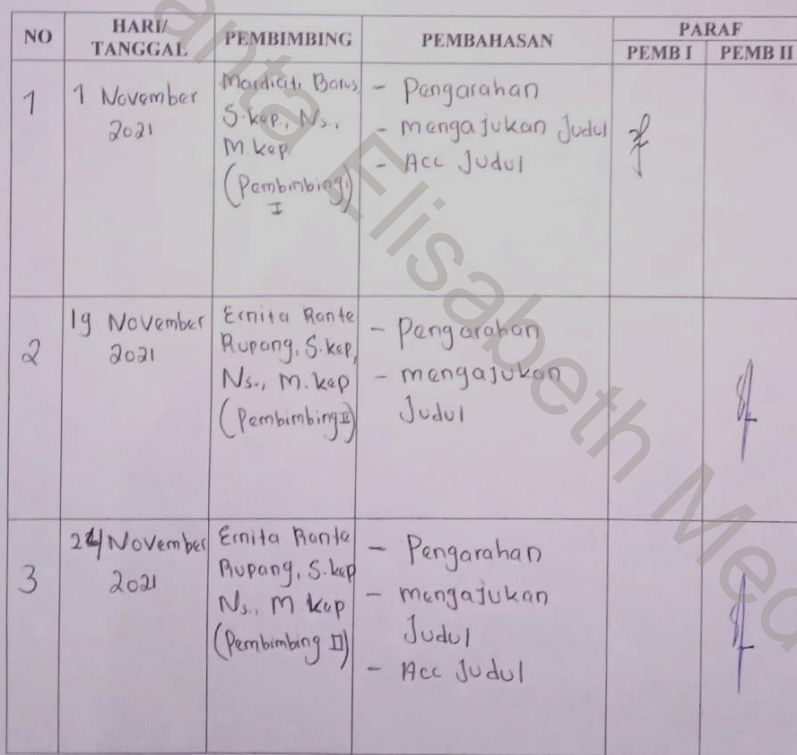 NO HARI/ TANGGAL PEMBIMBING PEMBAHASAN PARAF
PEMB I PEMB II
1 1 November 2021
Mardiati Barus,
S.kep., Ns.,
M.kep.
(Pembimbing
I)
- Pengarahan
- mengajukan Judul
- Acc Judul
2 19 November 2021
Ernita Rante
Rupang, S.kep,
Ns., M.kep
(Pembimbing II)
- Pengarahan
- mengajukan
Judul
3 24 November 2021
Ernita Rante
Rupang, S.kep
Ns., M.kep
(Pembimbing II)
- Pengarahan
- mengajukan
Judul
- Acc Judul
anta Elisabeth Med